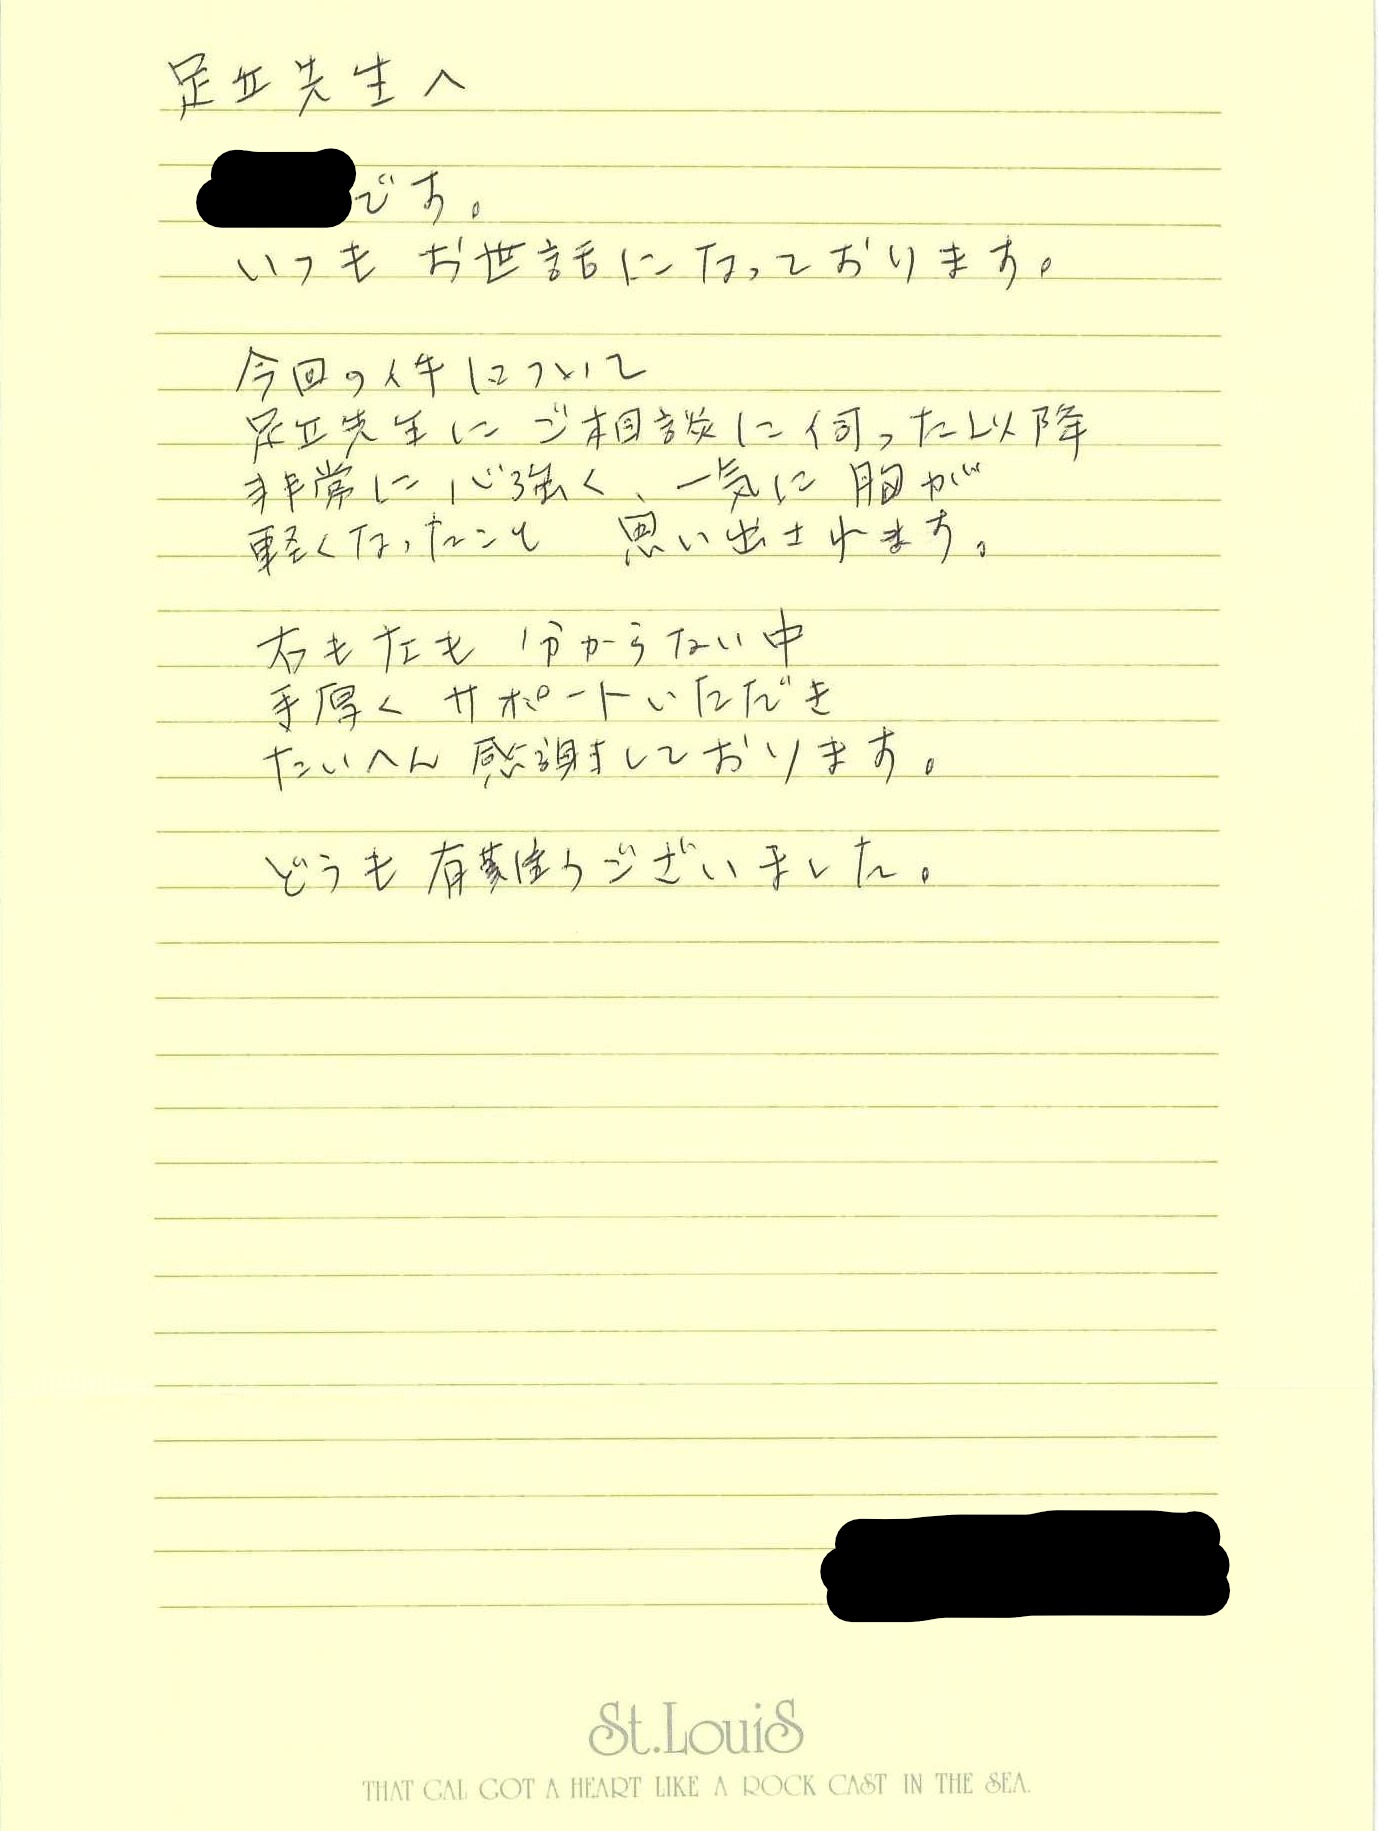 足立先生へ
です。
いつも お世話になっております。
今回の件について
足立先生に ご相談に伺った以降
非常に心強く、一気に 胸が
軽くなったこと 思い出されます。
右も左も 分からない中
手厚く サポートいただき
たいへん 感謝しております。
どうも 有難うございました。
St.LouiS
THAT GAL GOT A HEART LIKE A ROCK CAST IN THE SEA.